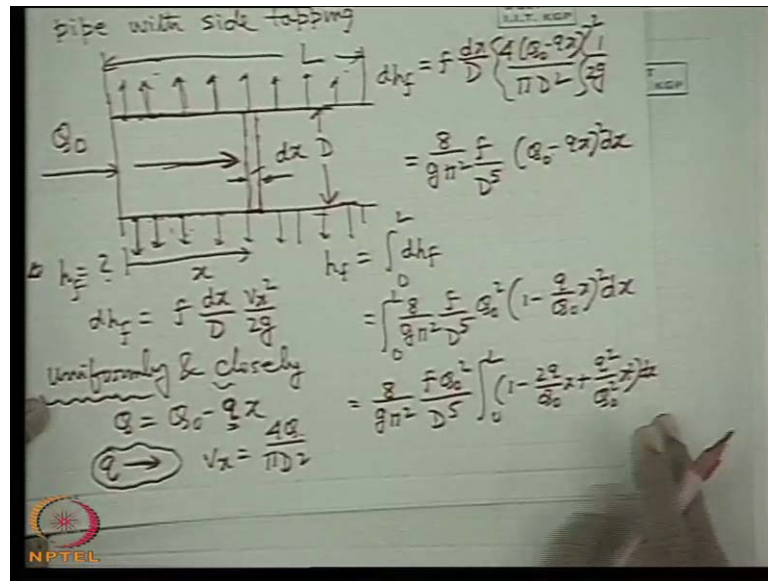 pipe with side tapping
I.I.T. KGP
KGP
L
Q₀
dx
D
x
h_f = ?
dh_f = f dx/D Vx²/2g
uniformly & closely
Q = Q₀ - qx
q →
Vx = 4Q/πD²
dh_f = f dx/D {4(Q₀-qx)/πD²}² 1/2g
= 8/gπ² f/D⁵ (Q₀-qx)² dx
h_f = ∫₀ᴸ dh_f
= ∫₀ᴸ 8/gπ² f/D⁵ Q₀² (1 - q/Q₀ x)² dx
= 8/gπ² fQ₀²/D⁵ ∫₀ᴸ (1 - 2q/Q₀ x + q²/Q₀² x²) dx
NPTEL